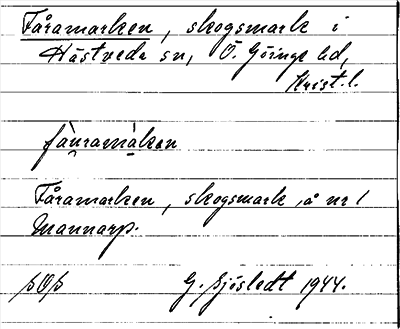 Fåramarken, skogsmark i
Hästveda sn, Ö. Göinge hd,
Krist.l.
fåuramàken
Fåramarken, skogsmark, å nr 1
Mannarp.
G. Sjöstedt 1944.